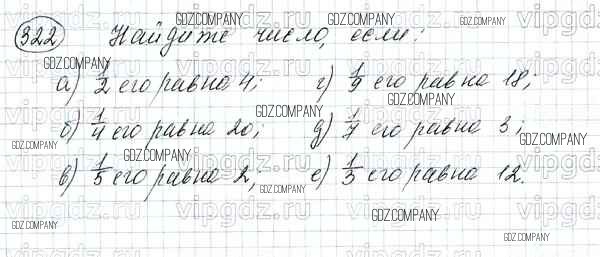 322 Найдите число, если:
а) 1/2 его равно 4; г) 1/9 его равно 18;
б) 1/4 его равно 20; д) 1/7 его равно 3;
в) 1/5 его равно 2; е) 1/3 его равно 12.
GDZ.COMPANY
GDZ.COMPANY
GDZ.COMPANY
GDZ.COMPANY
GDZ.COMPANY
GDZ.COMPANY
GDZ.COMPANY
GDZ.COMPANY
GDZ.COMPANY
GDZ.COMPANY
GDZ.COMPANY
GDZ.COMPANY
GDZ.COMPANY
vipgdz.ru
vipgdz.ru
vipgdz.ru
vipgdz.ru